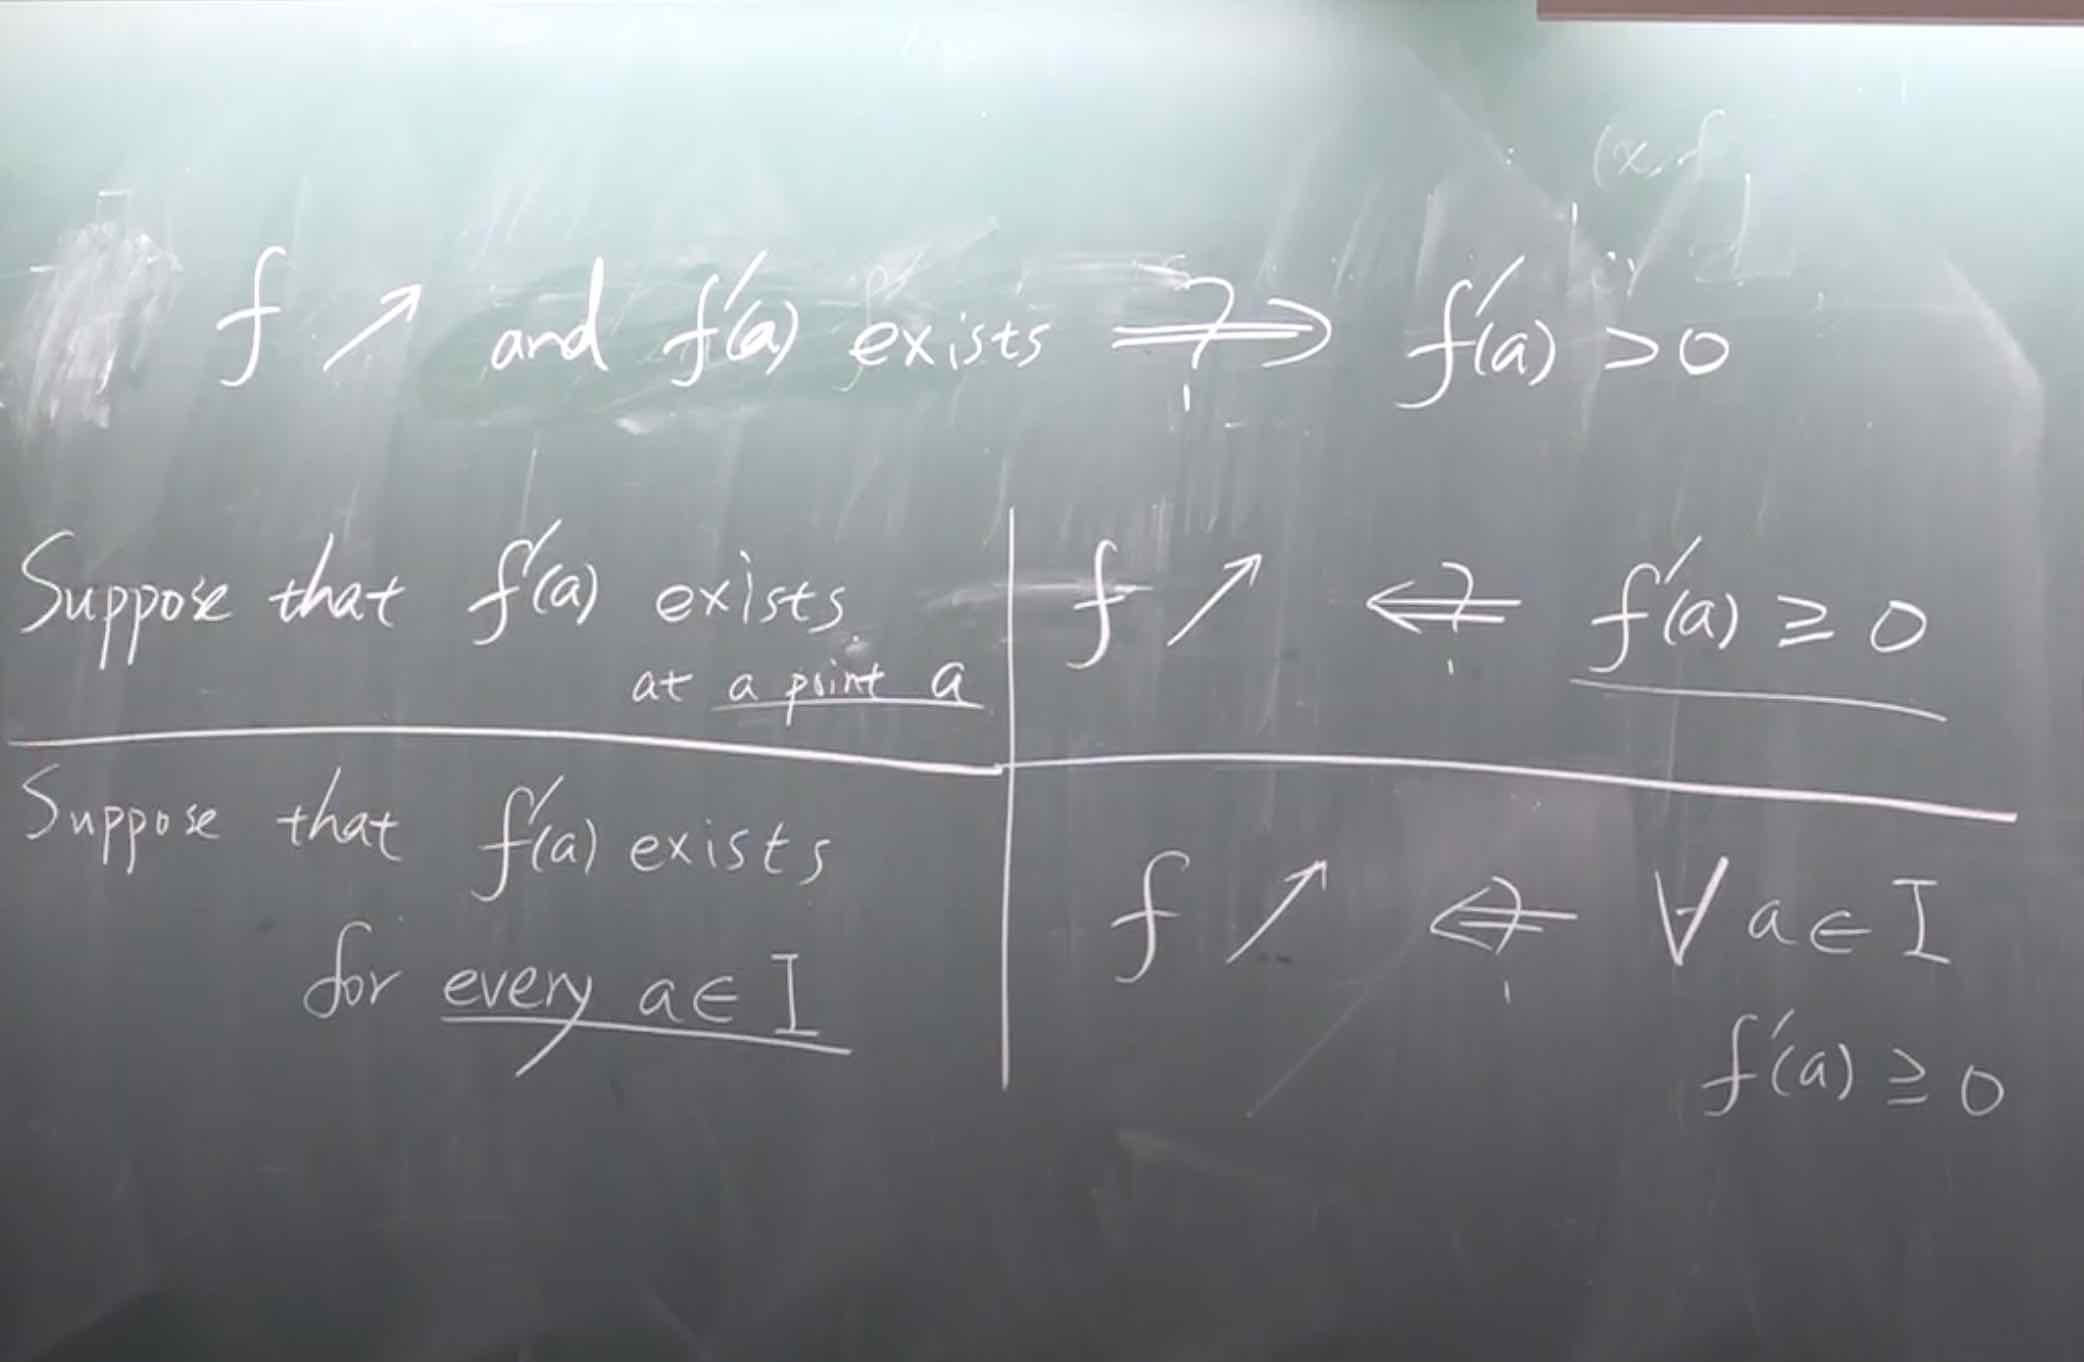 (x, f
f ↗ and f'(a) exists ⇒? f'(a) > 0
Suppose that f'(a) exists
at a point a
f ↗ ⇐? f'(a) ≥ 0
Suppose that f'(a) exists
for every a ∈ I
f ↗ ⇐? ∀ a ∈ I
f'(a) ≥ 0